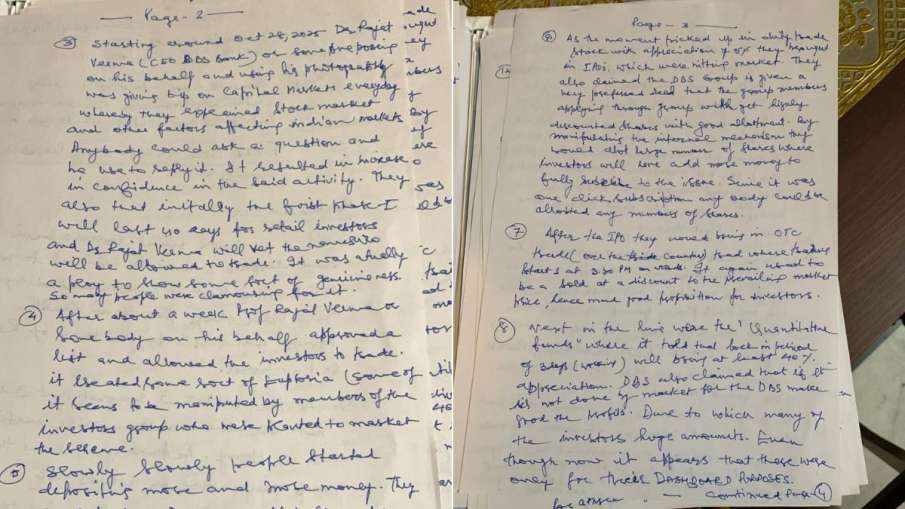 Page - 2
③ Starting around Oct 28, 2025 Dr Rajat
Verma (CEO DBS Bank) or some one posing
on his behalf and using his photography
was giving tips on Capital Markets everyday
whereby they explained Stock market
and other factors affecting indian markets
Anybody could ask a question and
he use to reply it. It resulted in increase
in confidence in the said activity. They
also that initially the first phase I
will last 40 days for retail investors
and Dr Rajat Verma will vet the names who
will be allowed to trade. It was actually
a ploy to show some sort of genuineness.
So many people were clamouring for it.
④ After about a week Prof Rajat Verma or
Somebody on his behalf approved a
list and allowed the investors to trade.
it created some sort of Euphoria (some of
it seems to be manipulated by members of the
investors group who were planted to market
the scheme.
⑤ Slowly Slowly people started
depositing more and more money. They
Page - 3
As the moment picked up in duty trade
Stock with appreciation of 5% they brought
in IPOs, which were hitting market. They
also claimed the DBS Group is given a
very preferred deal that the group members
applying through group will get highly
discounted shares with good allotment. By
manipulating the internal mechanism they
would allot large number of shares where
investors will love add more money to
fully subscribe to the issue. Since it was
one click subscription any body could be
allotted any numbers of shares.
⑦ After the IPO they moved being in OTC
trade (over the counter) trad where trading
starts at 3:30 PM on wards. It again used to
be a sold at a discount to the prevailing market
price, hence much good proposition for investors.
⑧ Next in the line were the "Quantitative
funds" where it told that lock in period
of 3 days (working) will bring at least 40%
appreciation. DBS also claimed that if it
is not done by market for the DBS make
good the profits. Due to which many of
the investors huge amounts. Even
though now it appears that these were
only for their DASHBOARD PURPOSES.
— continued Page ④